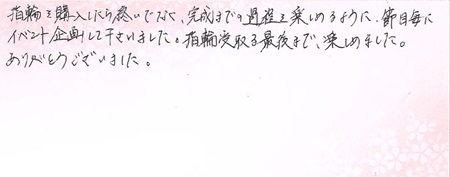 指輪を購入したら終いでなく、完成までの過程を楽しめるように、節目毎に
イベント企画して下さいました。指輪受取る最後まで、楽しめました。
ありがとうございました。